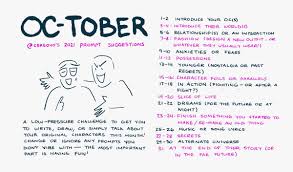 OC-TOBER
@CEROON'S 2021 PROMPT SUGGESTIONS
A LOW-PRESSURE CHALLENGE TO GET YOU
TO WRITE, DRAW, OR SIMPLY TALK ABOUT
YOUR ORIGINAL CHARACTERS THIS MONTH!
CHANGE OR IGNORE ANY PROMPTS YOU
DON'T VIBE WITH — THE MOST IMPORTANT
PART IS HAVING FUN!
1-2 INTRODUCE YOUR OC(S)
3-4 INTRODUCE THEIR WORLD(S)
5-6 RELATIONSHIP(S) OR AN INTERACTION
7-8 FASHION (DESIGN A NEW OUTFIT - OR
WHATEVER THEY USUALLY WEAR!)
9-10 ANXIETIES OR FEARS
11-12 POSSESSIONS
13-14 YOUNGER (NOSTALGIA OR PAST
REGRETS)
15-16 CHARACTER FOILS OR PARALLELS
17-18 IN ACTION (FIGHTING - OR AFTER A
FIGHT?)
19-20 SLICE OF LIFE
21-22 DREAMS (FOR THE FUTURE OR AT
NIGHT)
23-24 FINISH SOMETHING YOU STARTED TO
MAKE / RE-MAKE AN OLD THING
25-26 MUSIC OR SONG LYRICS
27-28 SECRETS
29-30 ALTERNATE UNIVERSE
31 AT THE END OF THEIR STORY (OR
IN THE FAR FUTURE)